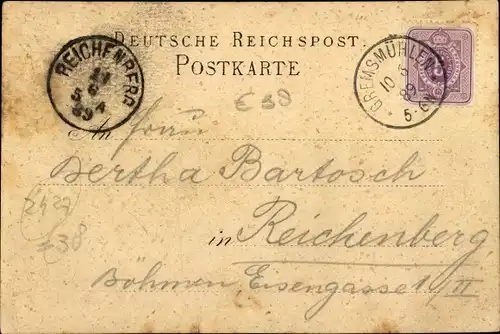 DEUTSCHE REICHSPOST.
POSTKARTE
REICHENBERG
6
5
89
GREMSMÜHLEN
10
5-6
€ 38
An Frau
Bertha Bartosch
in Reichenberg
Böhmen Eisengasse 1 II
€38